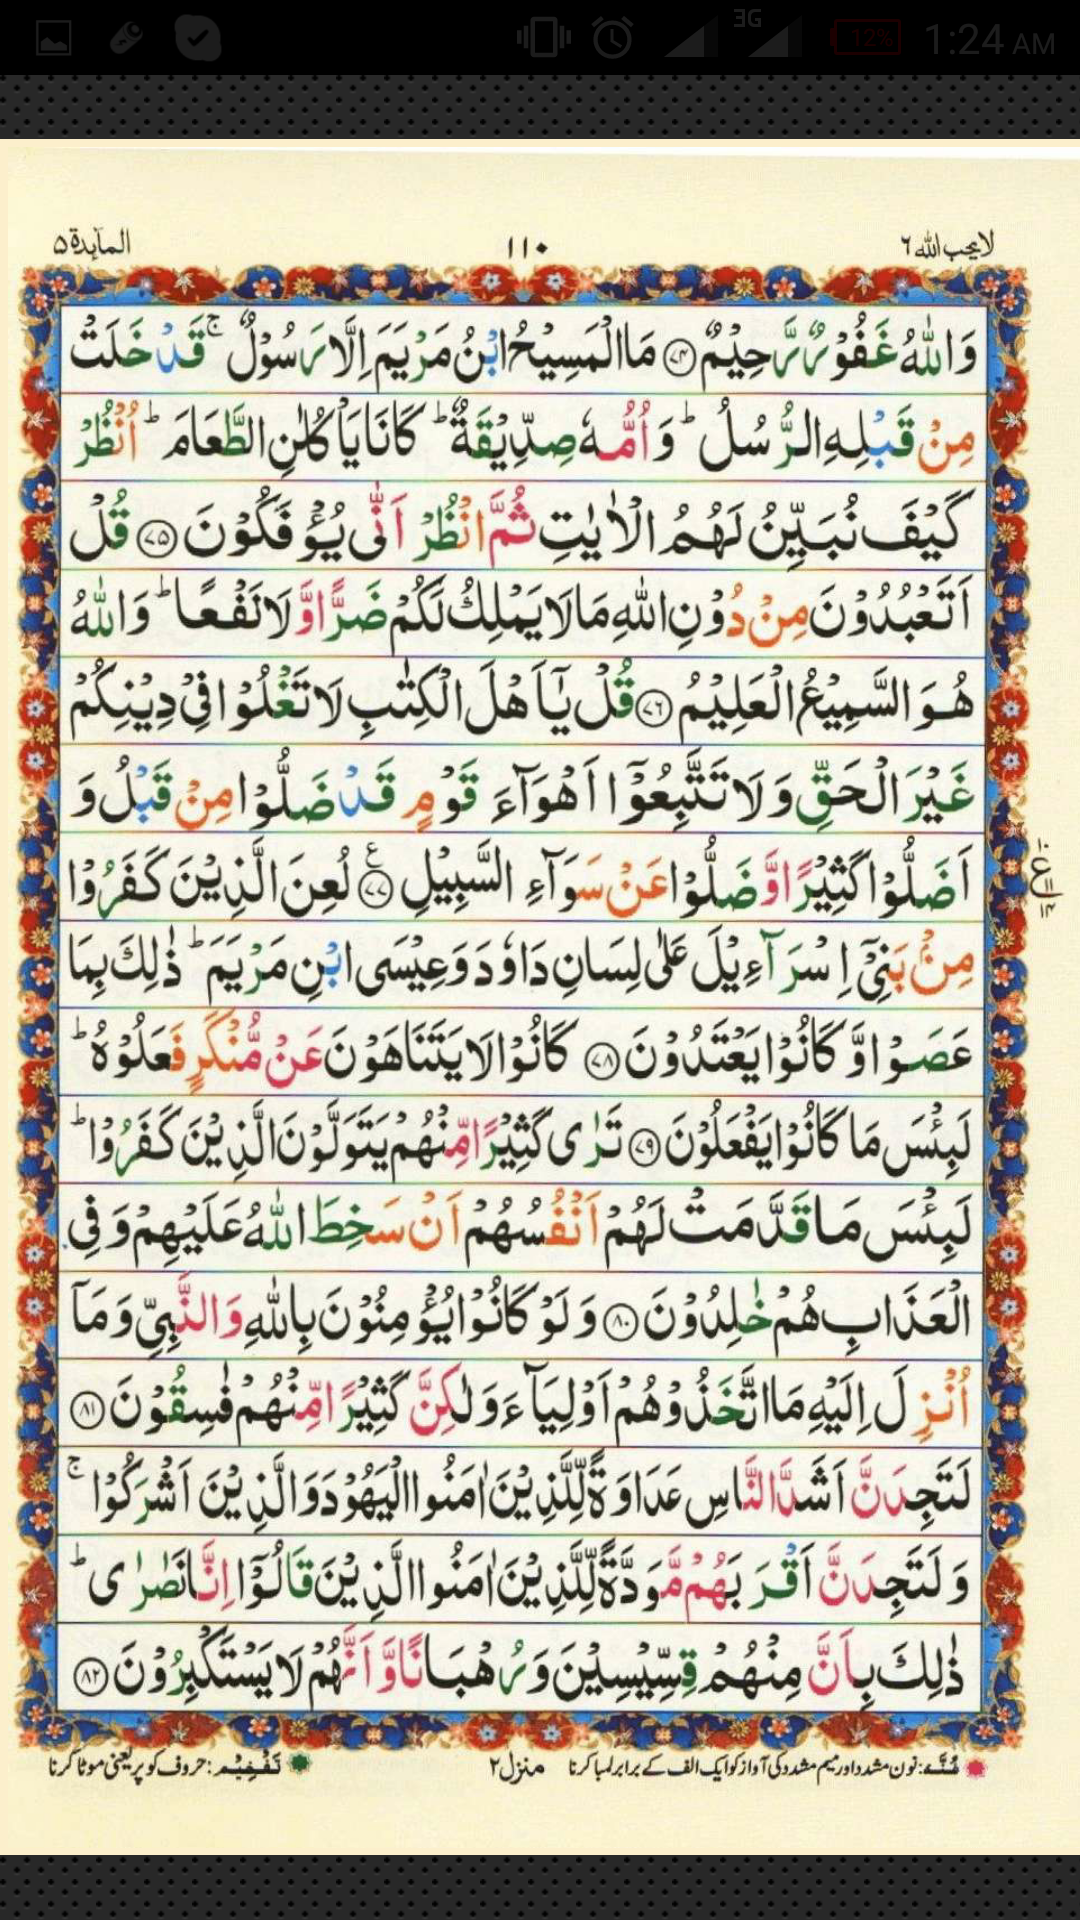 3G
12%
1:24 AM
المآىِٕدة ۵
۱۱۰
لا یحب اللہ ۶
وَاللّٰهُ غَفُوْرٌ رَّحِیْمٌ ﴿۷۴﴾ مَا الْمَسِیْحُ ابْنُ مَرْیَمَ اِلَّا رَسُوْلٌ ۚ قَدْ خَلَتْ
مِنْ قَبْلِهِ الرُّسُلُ ؕ وَاُمُّهٗ صِدِّیْقَةٌ ؕ كَانَا یَاْكُلٰنِ الطَّعَامَ ؕ اُنْظُرْ
كَیْفَ نُبَیِّنُ لَهُمُ الْاٰیٰتِ ثُمَّ انْظُرْ اَنّٰی یُؤْفَكُوْنَ ﴿۷۵﴾ قُلْ
اَتَعْبُدُوْنَ مِنْ دُوْنِ اللّٰهِ مَا لَا یَمْلِكُ لَكُمْ ضَرًّا وَّلَا نَفْعًا ؕ وَاللّٰهُ
هُوَ السَّمِیْعُ الْعَلِیْمُ ﴿۷۶﴾ قُلْ یٰۤاَهْلَ الْكِتٰبِ لَا تَغْلُوْا فِیْ دِیْنِكُمْ
غَیْرَ الْحَقِّ وَلَا تَتَّبِعُوْۤا اَهْوَآءَ قَوْمٍ قَدْ ضَلُّوْا مِنْ قَبْلُ وَ
اَضَلُّوْا كَثِیْرًا وَّضَلُّوْا عَنْ سَوَآءِ السَّبِیْلِ ﴿۷۷﴾ ع لُعِنَ الَّذِیْنَ كَفَرُوْا
۱۰
ع
۱۱
۱۴
مِنْۢ بَنِیْۤ اِسْرَآءِیْلَ عَلٰی لِسَانِ دَاوٗدَ وَعِیْسَی ابْنِ مَرْیَمَ ؕ ذٰلِكَ بِمَا
عَصَوْا وَّكَانُوْا یَعْتَدُوْنَ ﴿۷۸﴾ كَانُوْا لَا یَتَنَاهَوْنَ عَنْ مُّنْكَرٍ فَعَلُوْهُ ؕ
لَبِئْسَ مَا كَانُوْا یَفْعَلُوْنَ ﴿۷۹﴾ تَرٰی كَثِیْرًا مِّنْهُمْ یَتَوَلَّوْنَ الَّذِیْنَ كَفَرُوْا ؕ
لَبِئْسَ مَا قَدَّمَتْ لَهُمْ اَنْفُسُهُمْ اَنْ سَخِطَ اللّٰهُ عَلَیْهِمْ وَفِی
الْعَذَابِ هُمْ خٰلِدُوْنَ ﴿۸۰﴾ وَلَوْ كَانُوْا یُؤْمِنُوْنَ بِاللّٰهِ وَالنَّبِیِّ وَمَاۤ
اُنْزِلَ اِلَیْهِ مَا اتَّخَذُوْهُمْ اَوْلِیَآءَ وَلٰكِنَّ كَثِیْرًا مِّنْهُمْ فٰسِقُوْنَ ﴿۸۱﴾
لَتَجِدَنَّ اَشَدَّ النَّاسِ عَدَاوَةً لِّلَّذِیْنَ اٰمَنُوا الْیَهُوْدَ وَالَّذِیْنَ اَشْرَكُوْا ۚ
وَلَتَجِدَنَّ اَقْرَبَهُمْ مَّوَدَّةً لِّلَّذِیْنَ اٰمَنُوا الَّذِیْنَ قَالُوْۤا اِنَّا نَصٰرٰی ؕ
ذٰلِكَ بِاَنَّ مِنْهُمْ قِسِّیْسِیْنَ وَرُهْبَانًا وَّاَنَّهُمْ لَا یَسْتَكْبِرُوْنَ ﴿۸۲﴾
غُنَّہ: نون مشدد اور میم مشدد کی آواز کو ایک الف کے برابر لمبا کرنا
منزل ۲
تَفْخِیْم: حروف کو پر یعنی موٹا کرنا